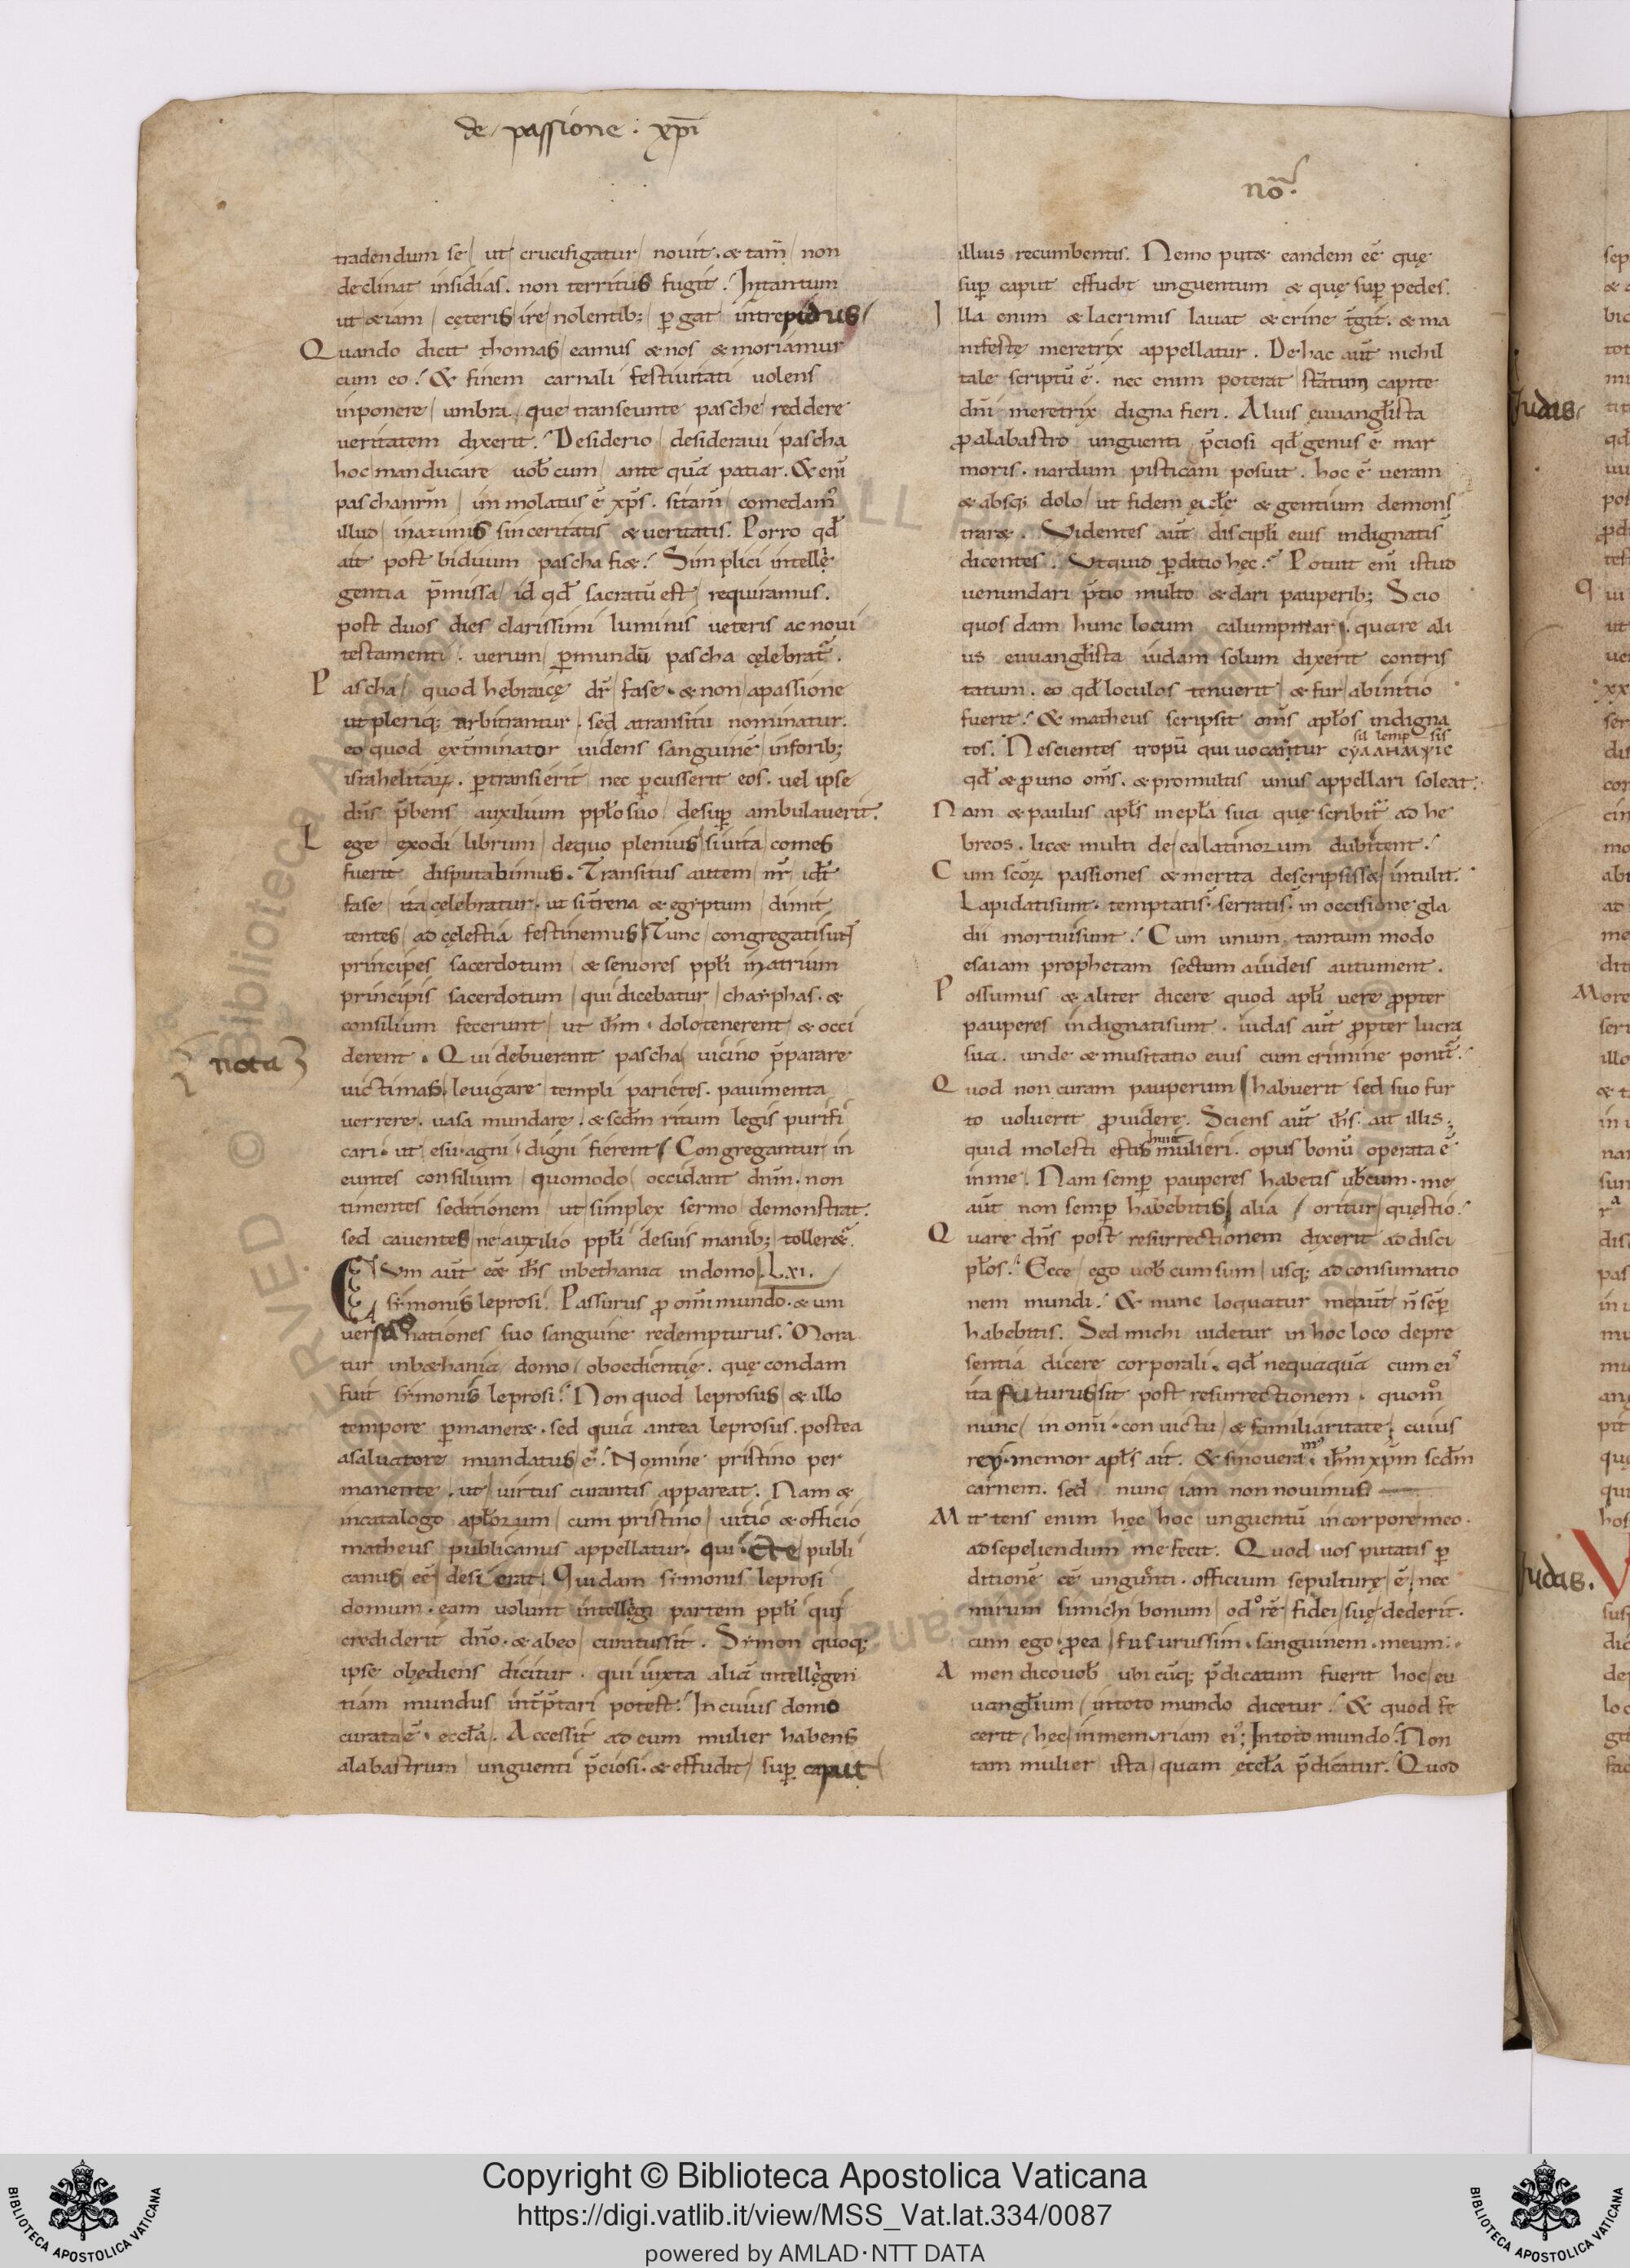 de passione : xp̄i
nō.
tradendum se ut crucifigatur novit. & tam̄ non
declinat insidias. non territus fugit. Intantum
ut & iam ceteris ire nolentib; pergat intrepidus
Quando dicit thomas eamus & nos & moriamur
cum eo. & finem carnali festivitati volens
inponere umbra que transeunte pasche reddere
veritatem dixerit. Desiderio desideravi pascha
hoc manducare vob cum ante quā patiar. & eni
pascha nrm̄ immolatus ē xp̄s. si tam̄ comedam'
illud in azimis sinceritatis & veritatis. Porro qđ
ait post biduum pascha fi&. Simplici intellę
gentia p̄missa id qđ sacratū est requiramus.
post duos dies clarissimi luminis veteris ac novi
testamenti. verum p̱ mundū pascha cęlebrat'.
Pascha quod hebraicę dr̄ fase & non a passione
ut pleriq; arbitrantur. sed a transitu nominatur.
eo quod ext̄minator videns sanguinē in forib;
israhelitarꝝ. p̱transierit nec p̱cusserit eos. vel ipse
dn̄s p̄bens auxilium ppło suo desup̱ ambulaverit.
Lege exodi librum de quo plenius si vita comes
fuerit disputabimus. Transitus autem nr̄ id ē
fase ita cęlebratur. ut si t̄rena & egyptum dimit
tentes ad cęlestia festinemus Tunc congregati sūt
principes sacerdotum & seniores ppłi in atrium
principis sacerdotum qui dicebatur chayphas. &
consilium fecerunt ut ih̄m dolo tenerent & occi
nota
derent. Qui debuerant pascha vicino p̄parare
victimas levigare templi parietes. pavimenta
verrere. vasa mundare. & scđm ritum legis purifi
cari. ut esu agni digni fierent Congregantur in
euntes consilium quomodo occidant dn̄m. non
timentes seditionem ut simplex sermo demonstrat.
sed caventes ne auxilio ppłi de suis manib; toller&'.
Cum aūt eē& ih̄s in bethania in domo LXI.
symonis leprosi. Passurus p̱ omi mundo. & uni
versas nationes suo sanguine redempturus. Mora
tur in b&hania domo oboedientię. quę condam
fuit symonis leprosi. Non quod leprosus & illo
tempore p̱maner&. sed quia antea leprosus. postea
a salvatore mundatus ē. Nomine pristino per
manente. ut virtus curantis appareat. Nam &
in catalogo apłorum cum pristino vitio & officio
matheus publicanus appellatur. qui certe publi
canus eē desierat. Quidam symonis leprosi
domum. eam volunt intellegi partem ppłi qui
crediderit dn̄o. & ab eo curatus sit. Symon quoq;
ipse obędiens dicitur. qui iuxta aliā intellęgen
tiam mundus int̄p̄tari potest. In cuius domo
curata ē eccła. Accessit ad eum mulier habens
alabastrum unguenti p̄ciosi. & effudit sup̱ caput
illius recumbentis. Nemo put& eandem eē quę
sup̱ caput effudit unguentum & quę sup̱ pedes.
Illa enim & lacrimis lavat & crine t̄git. & ma
nifestę meretrix appellatur. De hac aūt nichil
tale scriptū ē. nec enim poterat statum capite
dn̄i meretrix digna fieri. Alius euuangłista
p̱ alabastro unguenti p̄ciosi qđ genus ē mar
moris. nardum pisticam posuit. hoc ē veram
& absq; dolo ut fidem ęccłę & gentium demons
trar&. Videntes aūt discipłi eius indignatis
dicentes. Utquid p̱ditio hęc. Potuit eni istud
venundari p̄tio multo & dari pauperib; Scio
quosdam hunc locum calumpniari. quare ali
us euuangłista iudam solum dixerit contris
tatum. eo qđ loculos tenuerit & fur ab initio
fuerit. & matheus scripsit om̄s apłos indigna
sil lemp sis
tos. Nescientes tropū qui vocantur ϲⲩⲗⲗⲏⲙⲯⲓⲥ
qđ & p̱ uno om̄s. & pro multis unus appellari soleat.
Nam & paulus apłs in epła sua quę scribit' ad he
breos. lic& multi de ea latinorum dubitent.
Cum scōrꝝ passiones & merita descripsiss& intulit.
Lapidati sunt. temptatis. serratis. in occisione gla
dii mortui sunt. Cum unum tantum modo
esaiam prophetam sectum a iudeis autument.
Possumus & aliter dicere quod apłi vere p̱pter
pauperes indignati sunt. iudas aūt p̱pter lucra
sua. unde & musitatio eius cum crimine ponit'.
Quod non curam pauperum habuerit sed suo fur
to voluerit p̱videre. Sciens aūt ih̄s. ait illis.
huic
quid molesti estis mulieri. opus bonū operata ē
in me. Nam semp̱ pauperes habetis vob̄cum. me
aūt non semp̱ habebitis alia oritur quęstio.
Quare dn̄s post resurrectionem dixerit ad disci
płos. Ecce ego vob cum sum usq; ad consumatio
nem mundi. & nunc loquatur me aūt n̄ sēp̱
habebitis. Sed michi videtur in hoc loco de pre
sentia dicere corporali. qđ nequaquā cum eis
ita futurus sit post resurrectionem. quom̊
nunc in omi convictu & familiaritate. cuius
m'
rei memor apłs ait. & si noveri ih̄m xp̄m scđm
carnem. sed nunc iam non novimus
Mittens enim hęc hoc unguentū in corpore meo.
ad sepeliendum me fecit. Quod vos putatis p̱
ditionē eē unguenti. officium sepulturę ē nec
mirum si michi bonum odorē fidei suę dederit.
cum ego p̱ ea fusurus sim sanguinem meum.
Amen dico vob ubicūq; p̄dicatum fuerit hoc eu
vangłium in toto mundo dicetur. & quod fe
cerit hęc in memoriam ei'; In toto mundo. Non
tam mulier ista quam ęccła p̄dicatur. Quod
Judas
Judas.
Copyright © Biblioteca Apostolica Vaticana
https://digi.vatlib.it/view/MSS_Vat.lat.334/0087
powered by AMLAD·NTT DATA
BIBLIOTECA APOSTOLICA VATICANA
BIBLIOTECA APOSTOLICA VATICANA